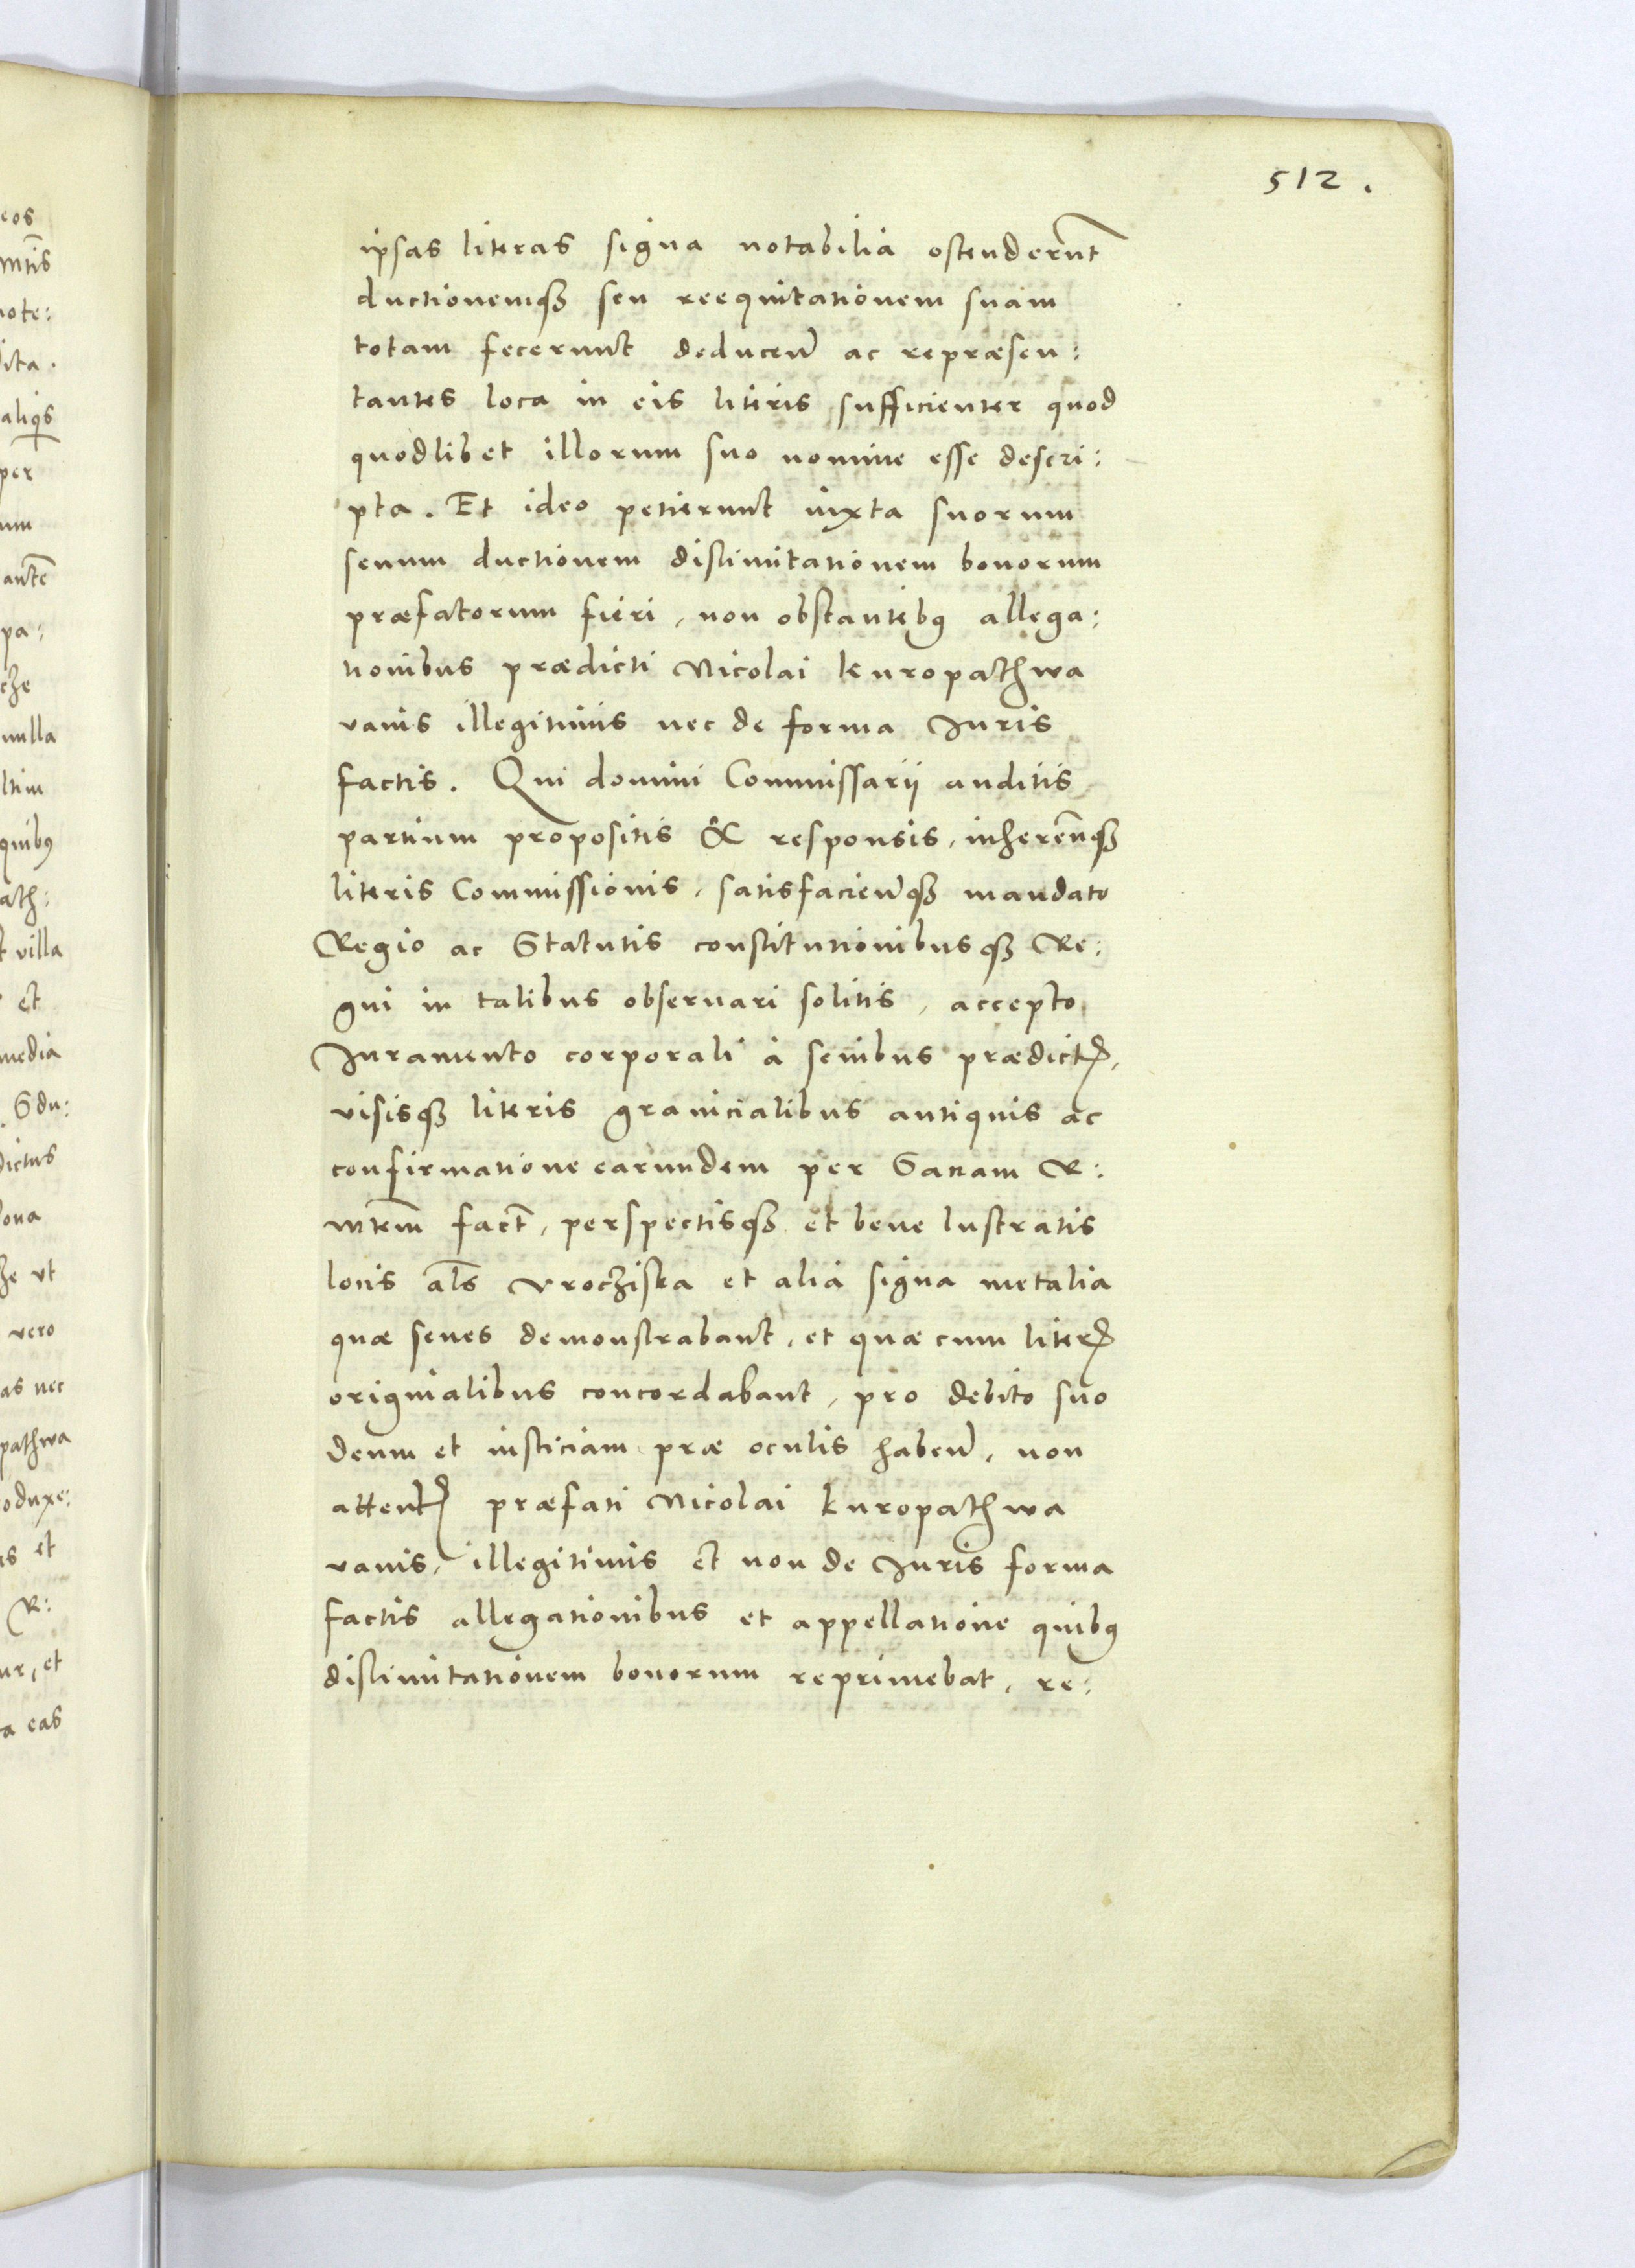 512.
ipsas literas signa notabilia ostenderunt
ductionemq3 seu reequitationem suam
totam fecerunt deducen̄ ac repræsen:
tantes loca in eis literis sufficienter quod
quodlibet illorum suo nomine esse descri:
pta. Et ideo petierunt iuxta suorum
senum ductionem dislimitationem bonorum
præfatorum fieri, non obstantibꝰ allega:
tionibus prædicti Nicolai Kuropathwa
vanis illegitimis nec de forma Iuris
factis. Qui domini Commissarij auditis
partium propositis & responsis, inheren̄q3
literis Commissionis, satisfacien̄q3 mandato
Regio ac Statutis constitutionibusq3 Re:
gni in talibus obseruari solitis, accepto
Iuramento corporali à senibus prædictꝭ,
visisq3 literis granicialibus antiquis ac
confirmatione earundem per Sacram R:
mtem̄ fact̄, perspectisq3 et bene lustratis
locis al̄s vroczißka et alia signa metalia
quæ senes demonstrabant, et quæ cum literꝭ
originalibus concordabant, pro debito suo
deum et iusticiam præ oculis haben̄, non
attentꝭ præfati Nicolai Kuropathwa
vanis, illegitimis et non de Iuris forma
factis allegationibus et appellatione quibꝰ
dislimitationem bonorum reprimebat, re: